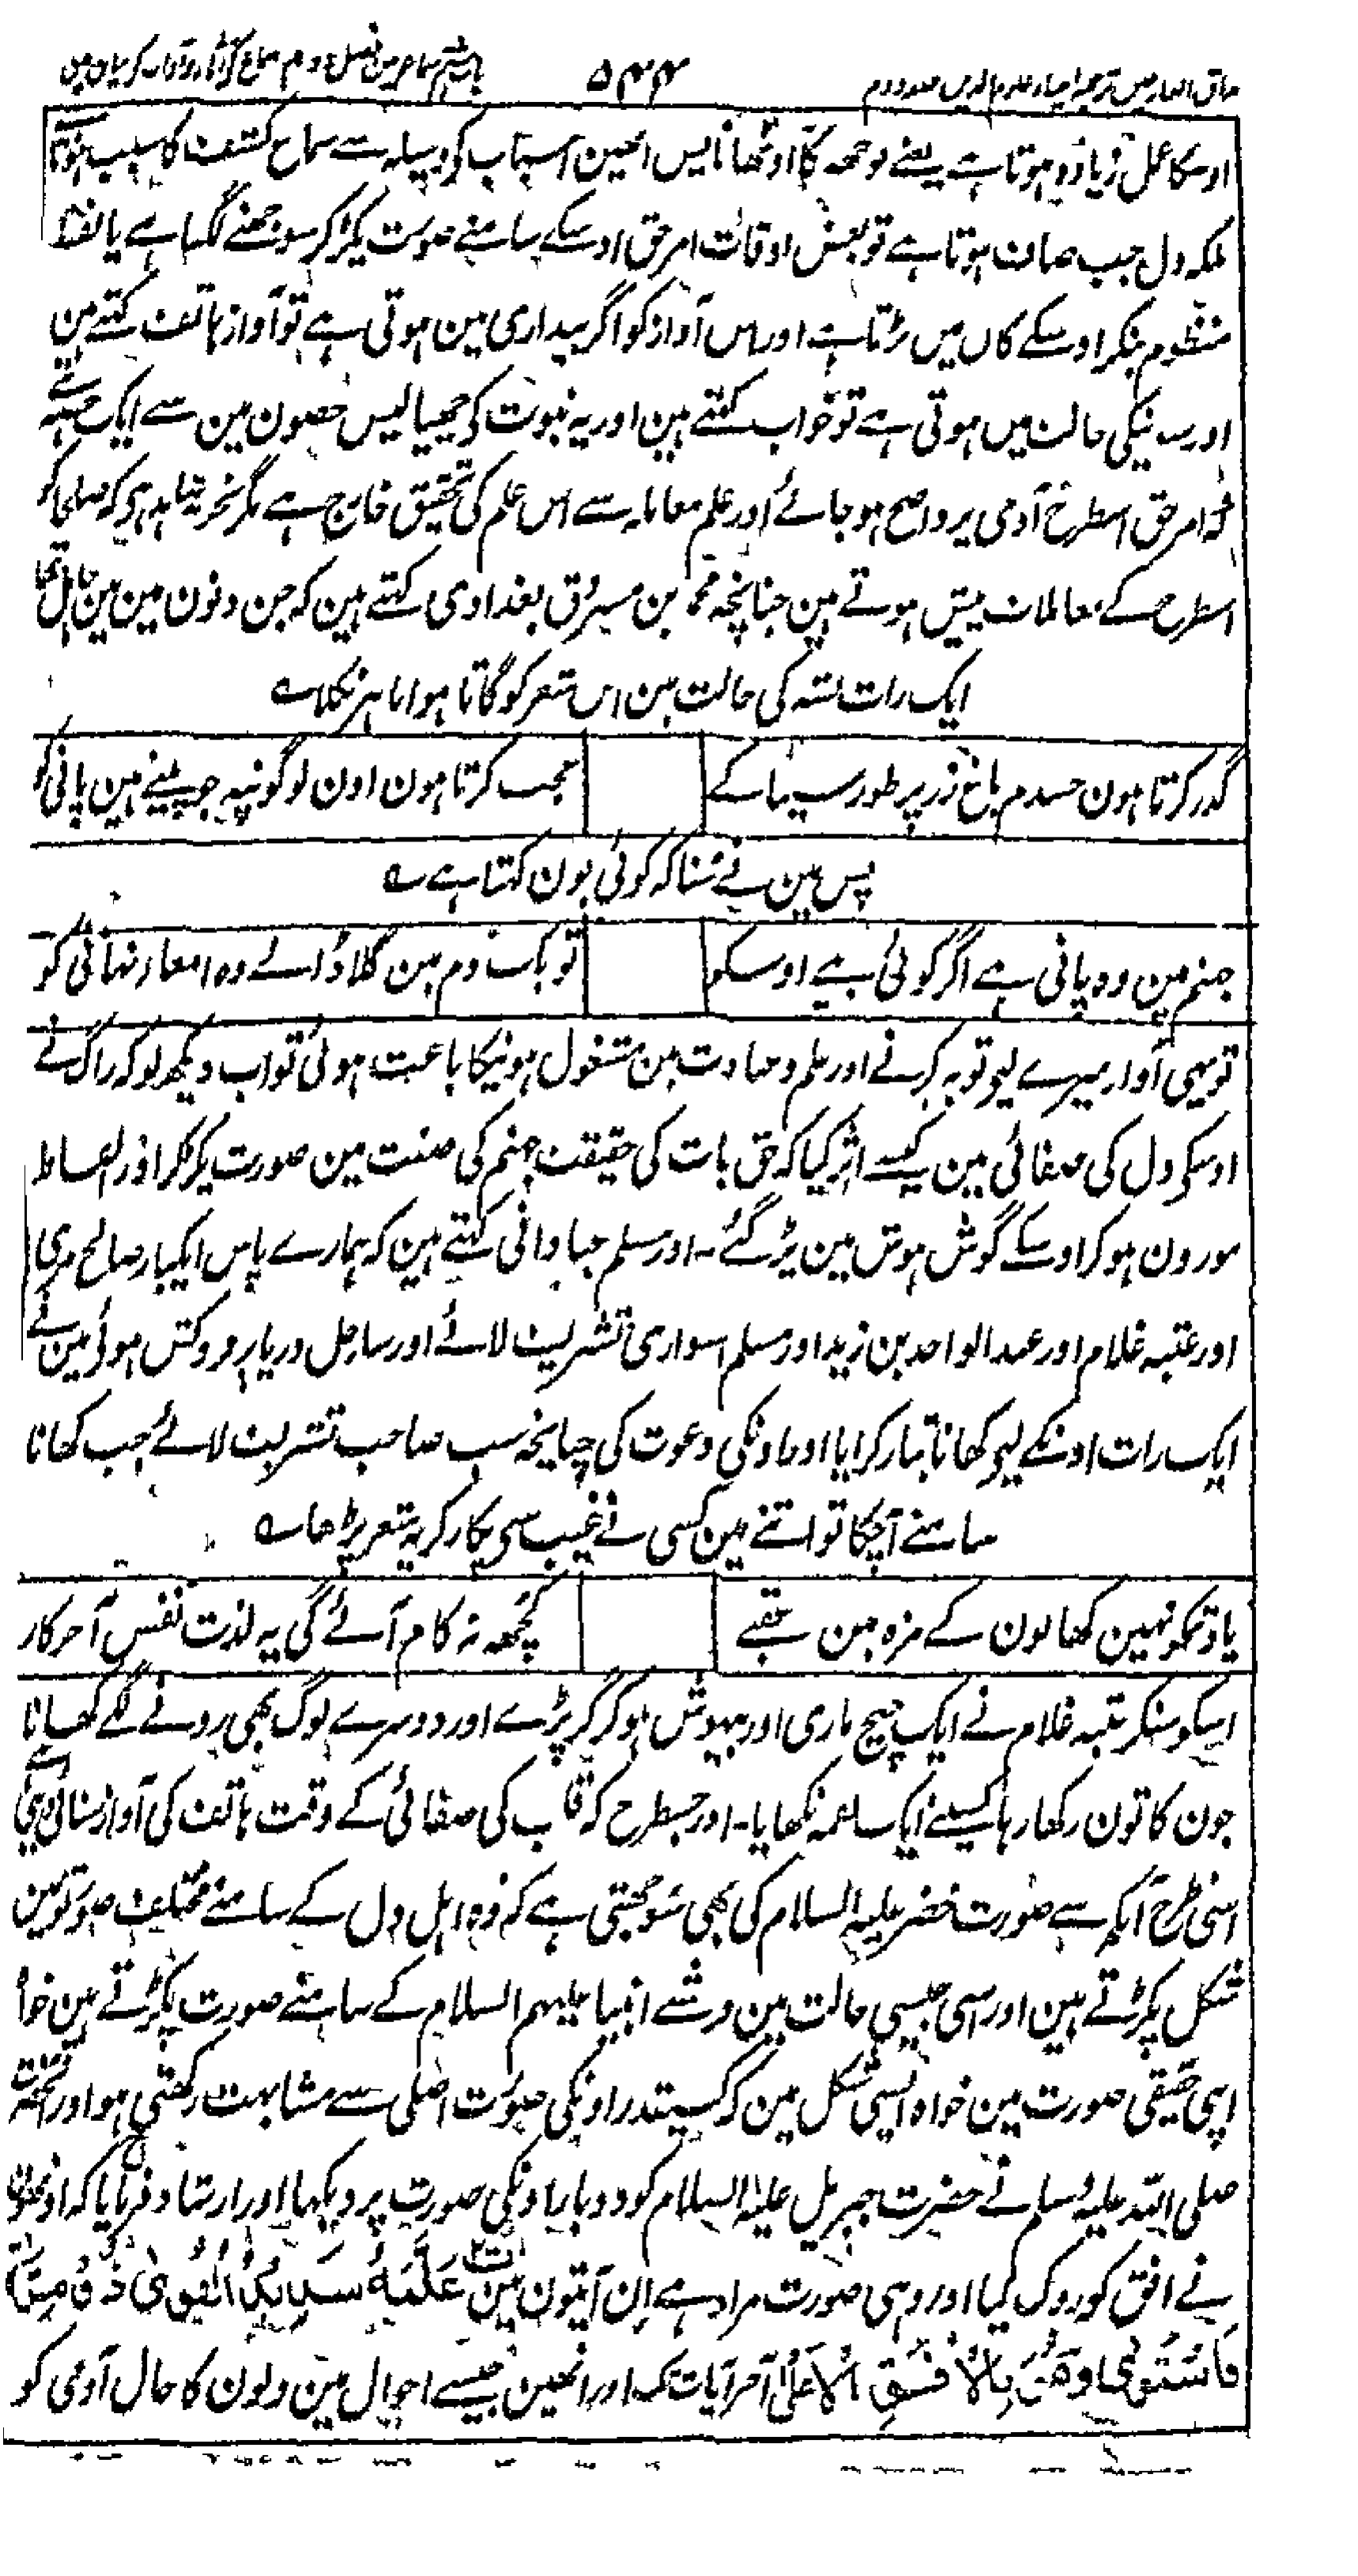 مذاق العارفین ترجمہ احیاء علوم الدین جلد دوم ۵۴۴ باب ہشتم سماع میں فصل دوم سماع کے آثار و آداب کے بیان میں
اوسکا عمل زیادہ ہوتا ہے یعنے بوجھہ کا اوٹھانا پس انھین اسباب کے وسیلہ سے سماع کشف کا سبب ہوتا ہے
بلکہ دل جب صاف ہوتا ہے تو بعض اوقات امر حق اوسکے سامنے صورت پکڑ کر سوجھنے لگتا ہے یا لفظ
منظوم بنکر اوسکے کان میں پڑتا ہے اور اس آواز کو اگر بیداری مین ہوتی ہے تو آواز ہاتف کہتے ہین
اور سونیکی حالت میں ہوتی ہے تو خواب کہتے ہین اور یہ نبوت کی چھیالیس حصون مین سے ایک حصہ ہے
امر حق اسطرح آدمی پر واضح ہو جائے اور علم معاملہ سے اس علم کی تحقیق خارج ہے مگر تجربہ شاہد ہی کہ صلحا کو
اسطرح کے معاملات پیش ہوتے ہین چنانچہ محمد بن مسروق بغدادی کہتے ہین کہ جن دنون مین مین جاہل تھا
ایک رات نشہ کی حالت مین اس شعر کو گاتا ہوا باہر نکلا ے
گذر کرتا ہون جسدم باغ زر پر طور سینا کے عجب کرتا ہون اون لوگونپہ جو پیتے ہین پانی کو
پس مین نے سُنا کہ کوئی یون کہتا ہے ے
جہنم مین وہ پانی ہے اگر کوئی پیے اوسکو تو یک دم مین گلا ڈالے وہ امعار نہانی کو
تو یہی آواز میرے لیے توبہ کرنے اور علم و عبادت مین مشغول ہونیکا باعث ہوئی تو اب دیکھہ لو کہ راگ نے
اوسکی دل کی صفائی مین کیسے اثر کیا کہ حق بات کی حقیقت جہنم کی صفت مین صورت پکڑ کر اور الفاظ
موزون ہو کر اوسکے گوش ہوش مین پڑ گئے ۔ اور مسلم عبادانی کہتے ہین کہ ہمارے پاس ایکبار صالح مری
اور عتبہ غلام اور عبد الواحد بن زید اور مسلم اسواری تشریف لائے اور ساحل دریا پر فروکش ہوئے مین نے
ایک رات اونکے لیے کھانا تیار کرایا اور اونکی دعوت کی چنانچہ سب صاحب تشریف لائے جب کھانا
سامنے آچکا تو اتنے مین کسی نے غیب سے پکار کر یہ شعر پڑھا ے
یاد تمکو نہین کھانون کے مزہ مین عقبے کچھہ نہ کام آئے گی یہ لذت نفس آخر کار
اسکو سنکر عتبہ غلام نے ایک چیخ ماری اور بیہوش ہو کر گر پڑے اور دوسرے لوگ بھی رونے لگے کھانا
جون کا تون رکھا رہا کسینے ایک لقمہ نکھایا ۔ اور جسطرح کہ قلب کی صفائی کے وقت ہاتف کی آواز سنائی دیتی ہے
اسی طرح آنکھ سے صورت خضر علیہ السلام کی بھی سُوجھتی ہے کہ وہ اہل دل کے سامنے مختلف صورتون مین
شکل پکڑتے ہین اور اسی جیسی حالت مین فرشتے انبیا علیہم السلام کے سامنے صورت پکڑتے ہین خواہ
اپنی حقیقی صورت مین خواہ ایسی شکل مین کہ کسیقدر اونکی صورت اصلی سے مشابہت رکھتی ہو اور آنحضرت
صلی اللہ علیہ وسلم نے حضرت جبریل علیہ السلام کو دوبار اونکی صورت پر دیکھا اور ارشاد فرمایا کہ اونھون
نے افق کو روک لیا اور وہی صورت مراد ہے ان آیتون مین عَلَّمَهٗ شَدِيْدُ الْقُوٰى ذُوْ مِرَّةٍ
فَاسْتَوٰى وَهُوَ بِالْاُفُقِ الْاَعْلٰى آخر آیات تک اور انھین جیسے احوال مین دلون کا حال آدمی کو